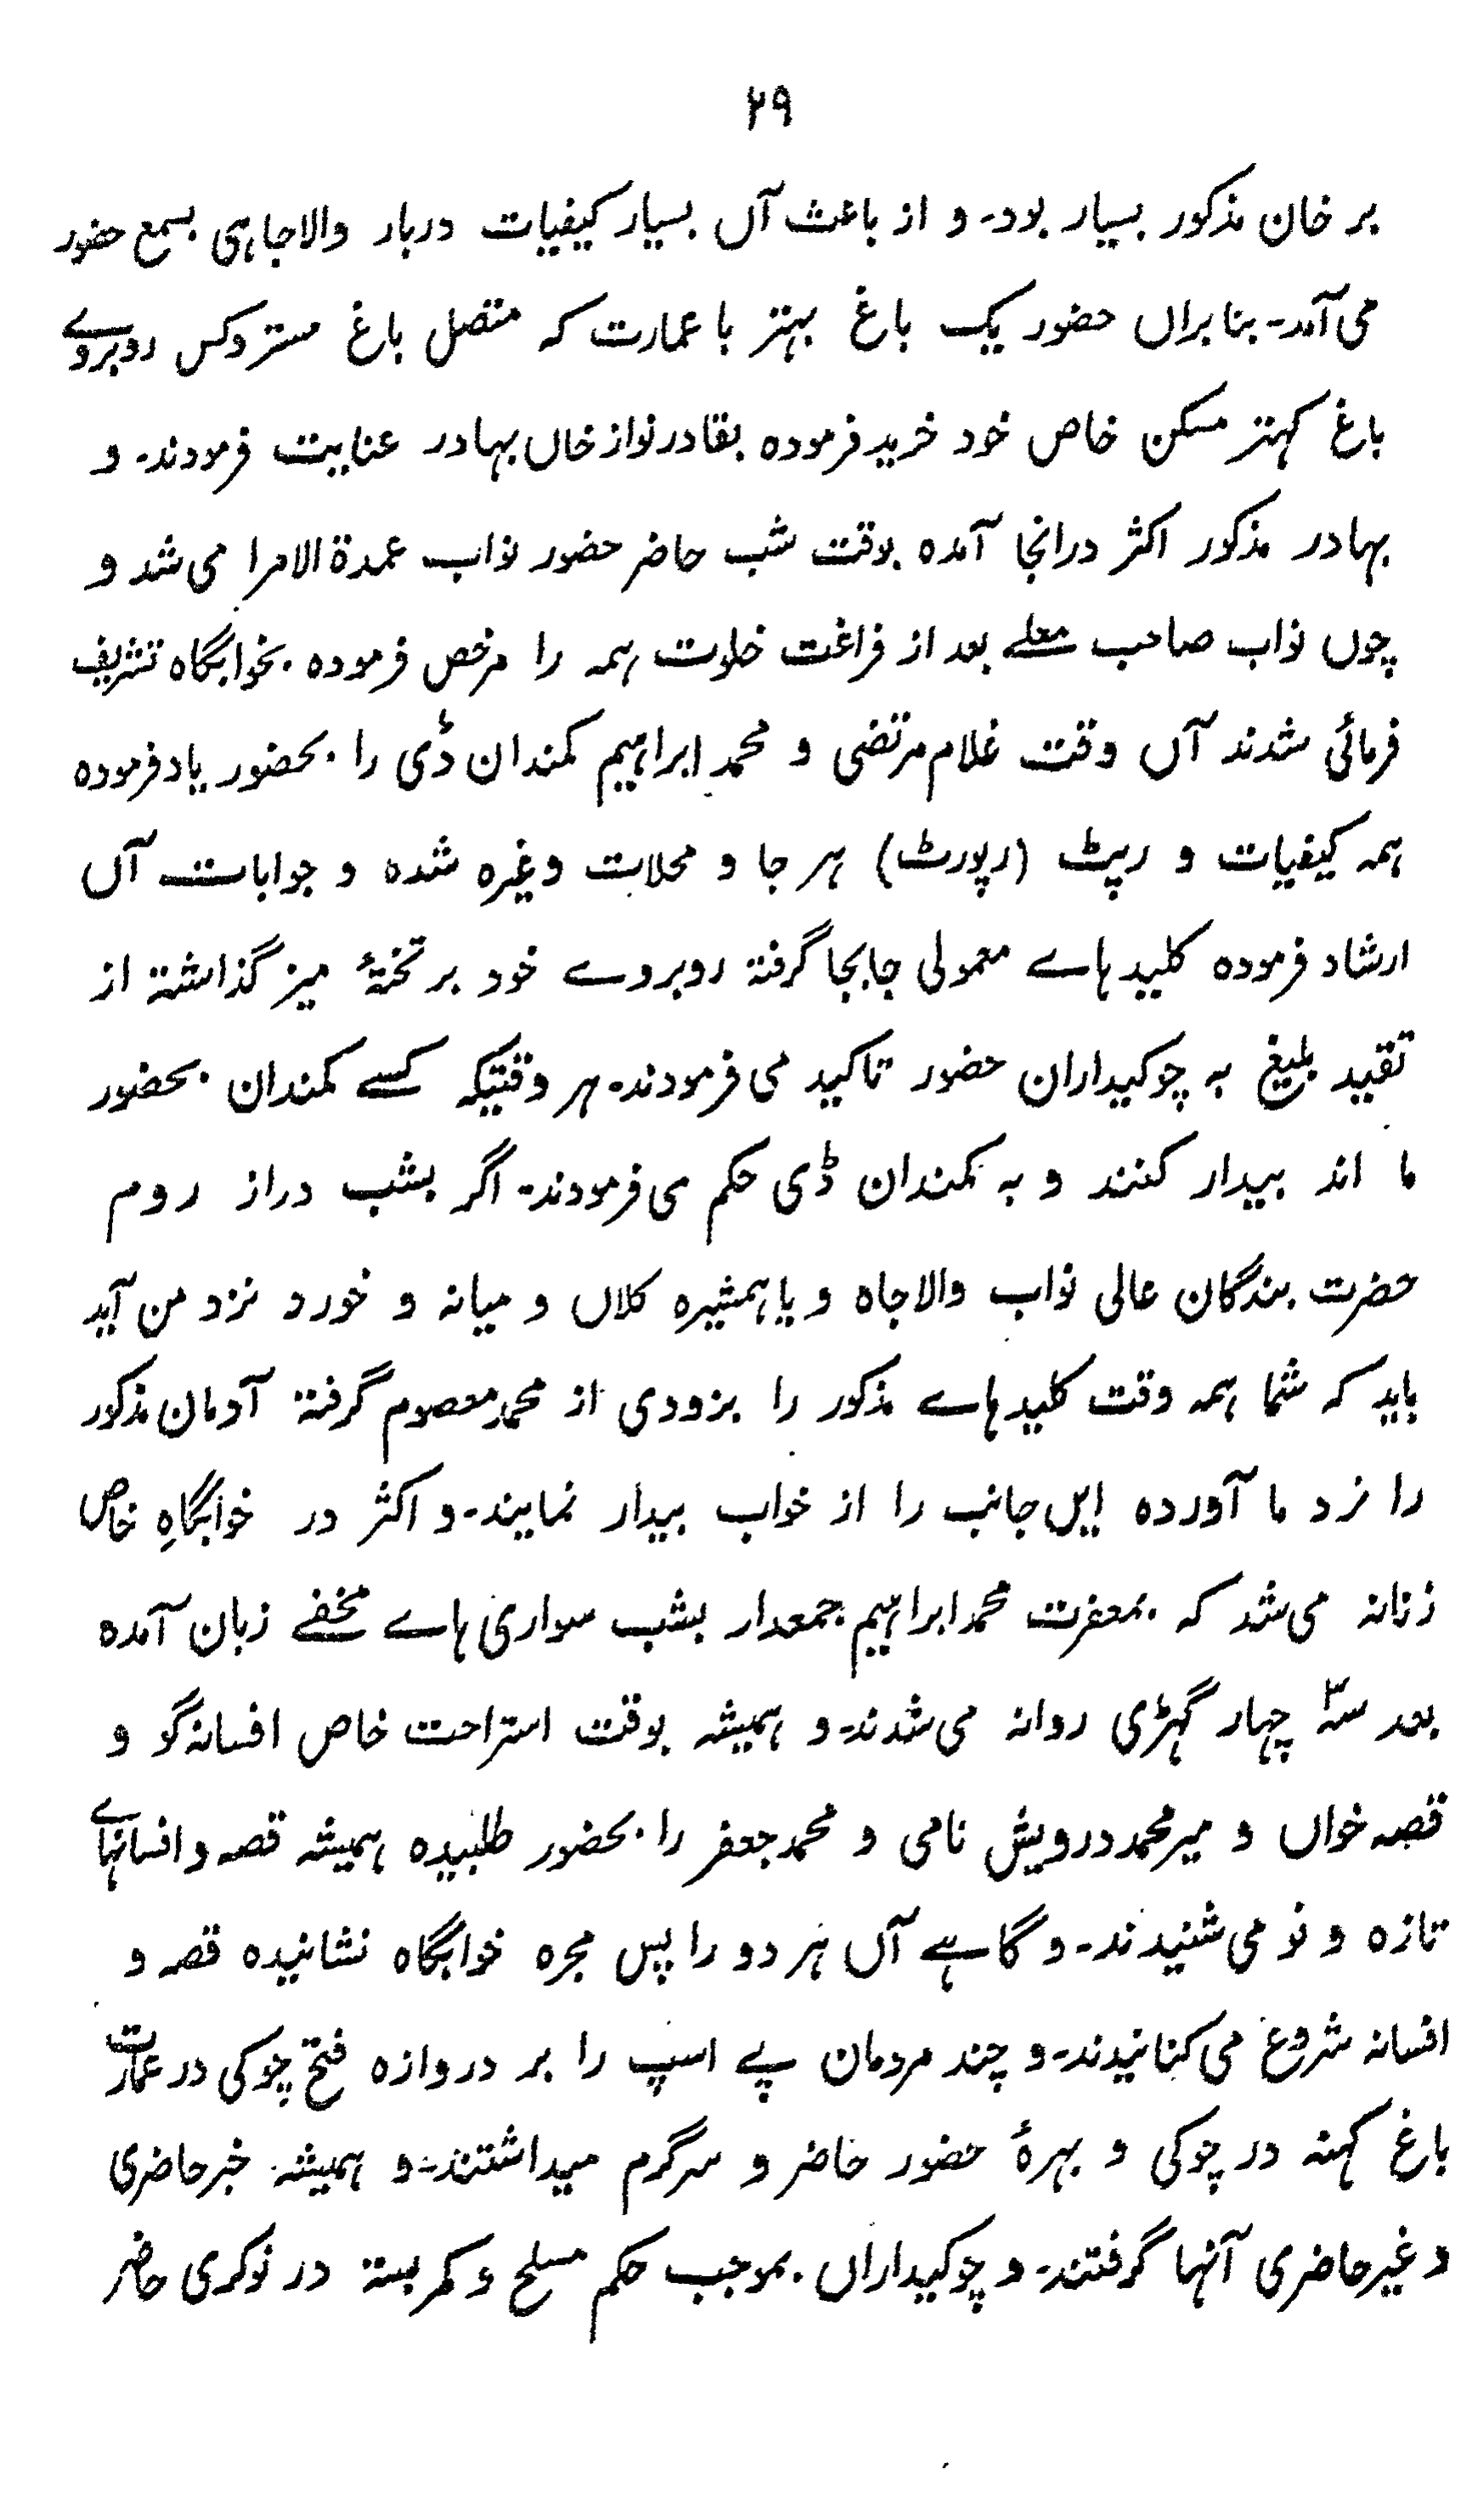 ۲۹
بر خان مذکور بسیار بود۔ و از باعث آں بسیار کیفیات دربار والاجاہی بسمع حضور
می آمد۔ بنابراں حضور یک باغ بہتر با عمارت کہ متصل باغ مستر وکس روبروے
باغ کہتر مسکن خاص خود خرید فرمودہ بقادر نواز خاں بہادر عنایت فرمودند۔ و
بہادر مذکور اکثر درانجا آمدہ بوقت شب حاضر حضور نواب عمدۃ الامرا می شد و
چوں نواب صاحب معلے بعد از فراغت خلوت ہمہ را مرخص فرمودہ بخوابگاہ تشریف
فرمائی شدند آں وقت غلام مرتضی و محمد ابراہیم کمندان ڈی را بحضور یاد فرمودہ
ہمہ کیفیات و رپٹ (رپورٹ) ہر جا و محلات وغیرہ شدہ و جوابات آں
ارشاد فرمودہ کلید ہاے معمولی جابجا گرفتہ روبروے خود بر تختۂ میز گذاشتہ از
تقید بلیغ بہ چوکیداران حضور تاکید می فرمودند۔ ہر وقتیکہ کسے کمندان بحضور
ما اند بیدار کنند و بہ کمندان ڈی حکم می فرمودند۔ اگر بشب دراز روم
حضرت بندگان عالی نواب والاجاہ و یا ہمشیرہ کلاں و میانہ و خورد نزد من آید
باید کہ شما ہمہ وقت کلید ہاے مذکور را بزودی از محمد معصوم گرفتہ آدمان مذکور
را نزد ما آوردہ ایں جانب را از خواب بیدار نمایند۔ و اکثر در خوابگاہِ خاص
زنانہ می شد کہ بمعرفت محمد ابراہیم جمعدار بشب سواری ہاے مخفے زبان آمدہ
بعد سہ چہار گہڑی روانہ می شدند۔ و ہمیشہ بوقت استراحت خاص افسانہ گو و
قصہ خواں و میر محمد درویش نامی و محمد جعفر را بحضور طلبیدہ ہمیشہ قصہ و افسانہاے
تازہ و نو می شنیدند۔ و گاہے آں ہر دو را پس مجرہ خوابگاہ نشانیدہ قصہ و
افسانہ شروع می کنانیدند۔ و چند مردمان پے اسپ را بر دروازہ فتح چوکی در عمارت
باغ کہنہ در چوکی و بہرۂ حضور حاضر و سرگرم میداشتند۔ و ہمیشہ خبر حاضری
و غیر حاضری آنہا گرفتند۔ و چوکیداراں بموجب حکم مسلح و کمر بستہ در نوکری حاضر